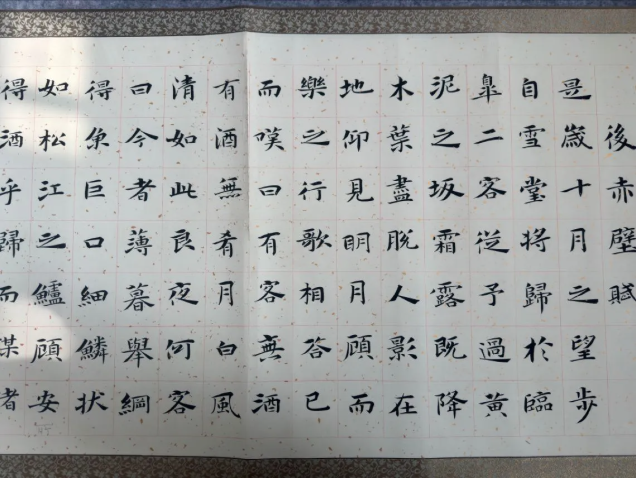 後赤壁賦
是歲十月之望步
自雪堂將歸於臨
皐二客從予過黃
泥之坂霜露既降
木葉盡脫人影在
地仰見明月顧而
樂之行歌相答已
而嘆曰有客無酒
有酒無肴月白風
清如此良夜何客
曰今者薄暮舉網
得魚巨口細鱗狀
如松江之鱸顧安
得酒乎歸而謀者